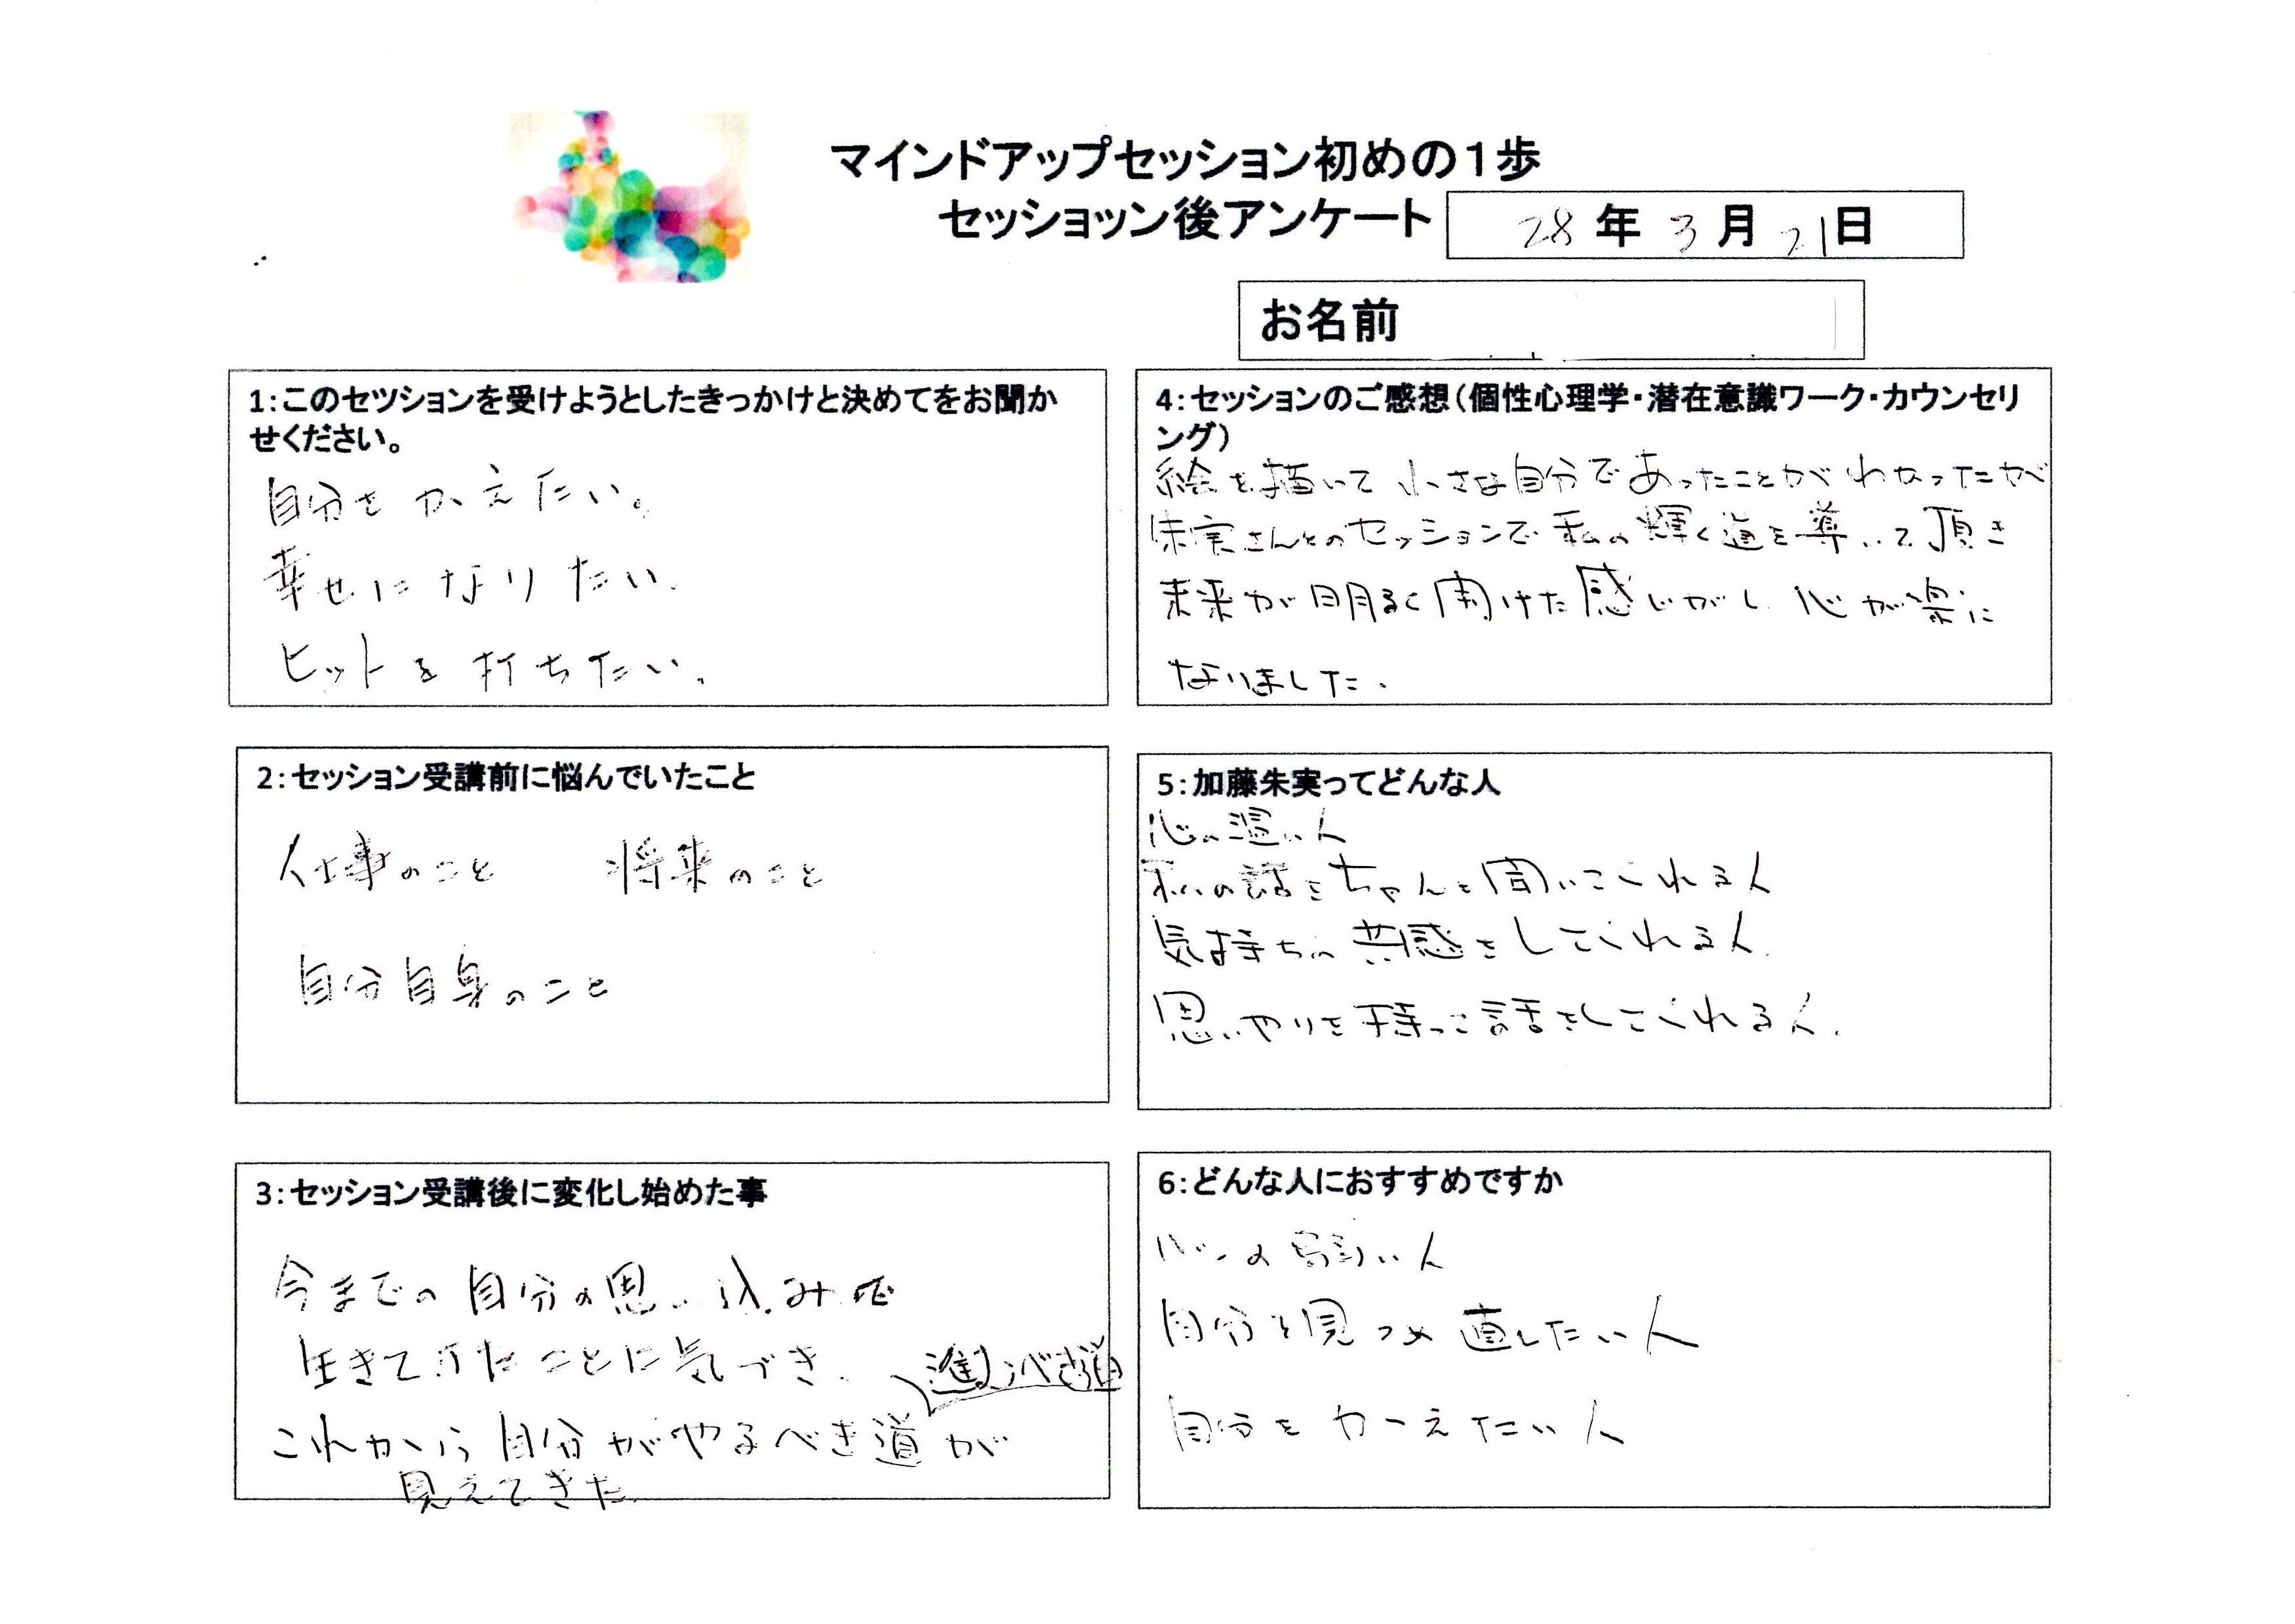 マインドアップセッション初めの1歩
セッショッン後アンケート
28年3月21日
お名前
1:このセツションを受けようとしたきっかけと決めてをお聞か
せください。
自分をかえたい。
幸せになりたい.
ヒットを打ちたい.
2:セッション受講前に悩んでいたこと
仕事のこと 将来のこと
自分自身のこと
3:セッション受講後に変化し始めた事
今までの自分の思い込みで
生きてきたことに気づき.
進むべき道
これから自分がやるべき道が
見えてきた.
4:セッションのご感想(個性心理学・潜在意識ワーク・カウンセリ
ング)
絵を描いて小さな自分であったことがわかったが
朱実さんとのセッションで私の輝く道を導いて頂き
未来が明るく開けた感じがし心が楽に
なりました.
5:加藤朱実ってどんな人
心の温い人
私の話をちゃんと聞いてくれる人
気持ちの共感をしてくれる人.
思いやりを持って話をしてくれる人.
6:どんな人におすすめですか
心の弱い人
自分を見つめ直したい人
自分をかえたい人